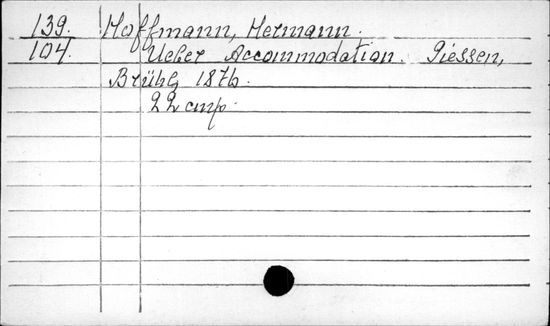 139. Hoffmann, Hermann.
104. Ueber Accommodation. Giessen,
Brühl 1876.
22 cmp.